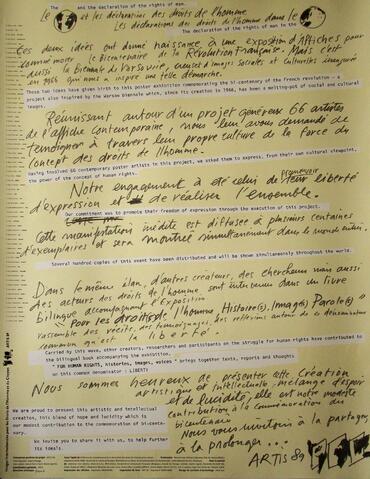 The and the declaration of the rights of man.
Le et les déclarations des droits de l'homme
Les déclarations des droits de l'homme dans le
The declaration of the rights of man in the
Ces deux idées ont donné naissance à une exposition d'Affiches pour
commémorer le Bicentenaire de la Révolution Française. Mais c'est
aussi la Biennale de Varsovie, creuset d'Images Sociales et Culturelles inauguré
en 1966 qui nous a inspiré une telle démarche.
These two ideas have given birth to this poster exhibition commemorating the bi-centenary of the french revolution - a
project also inspired by the Warsaw Biennale which, since its creation in 1966, has been a melting-pot of social and cultural
images.
Réunissant autour d'un projet généreux 66 artistes
de l'affiche contemporaine, nous leur avons demandé de
témoigner à travers leur propre culture de la force du
concept des droits de l'homme.
Having involved 66 contemporary poster artists in this project, we asked them to express, from their own cultural viewpoint,
the power of the concept of human rights.
Notre engagement a été celui de promouvoir leur liberté
d'expression et de réaliser l'ensemble.
Our commitment was to promote their freedom of expression through the execution of this project.
Cette manifestation inédite est diffusée à plusieurs centaines
d'exemplaires et sera montrée simultanément dans le monde entier.
Several hundred copies of this event have been distributed and will be shown simultaneously throughout the world.
Dans le même élan, d'autres créateurs, des chercheurs mais aussi
des acteurs des droits de l'homme sont intervenus dans un livre
bilingue accompagnant l'Exposition
"Pour les droits de l'homme Histoire(s), Image(s) Parole(s)"
rassemble des récits, des témoignages, des réflexions autour de ce dénominateur
commun qu'est la liberté.
Carried by this wave, other creators, researchers and participants on the struggle for human rights have contributed to
the bilingual book accompanying the exhibition.
" FOR HUMAN RIGHTS, histories, images, voices " brings together texts, reports and thoughts
on this common denominator : LIBERTY
Nous sommes heureux de présenter cette Création
artistique et intellectuelle, mélange d'espoir
et de lucidité; elle est notre modeste
contribution à la commémoration du
bicentenaire
We are proud to present this artistic and intellectual
creation, this blend of hope and lucidity which is our
modest contribution to the commemoration of bi-cente-
nary.
Nous vous invitons à la partager,
à la prolonger...
We invite you to share it with us, to help further
its ideals.
ARTIS 89